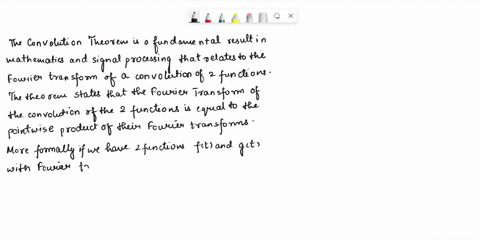 The Convolution Theorem is a fundamental result in
mathematics and signal processing that relates to the
Fourier transform of a convolution of 2 functions.
The theorem states that the Fourier Transform of
the convolution of the 2 functions is equal to the
pointwise product of their Fourier transforms.
More formally if we have 2 functions f(t) and g(t)
with Fourier